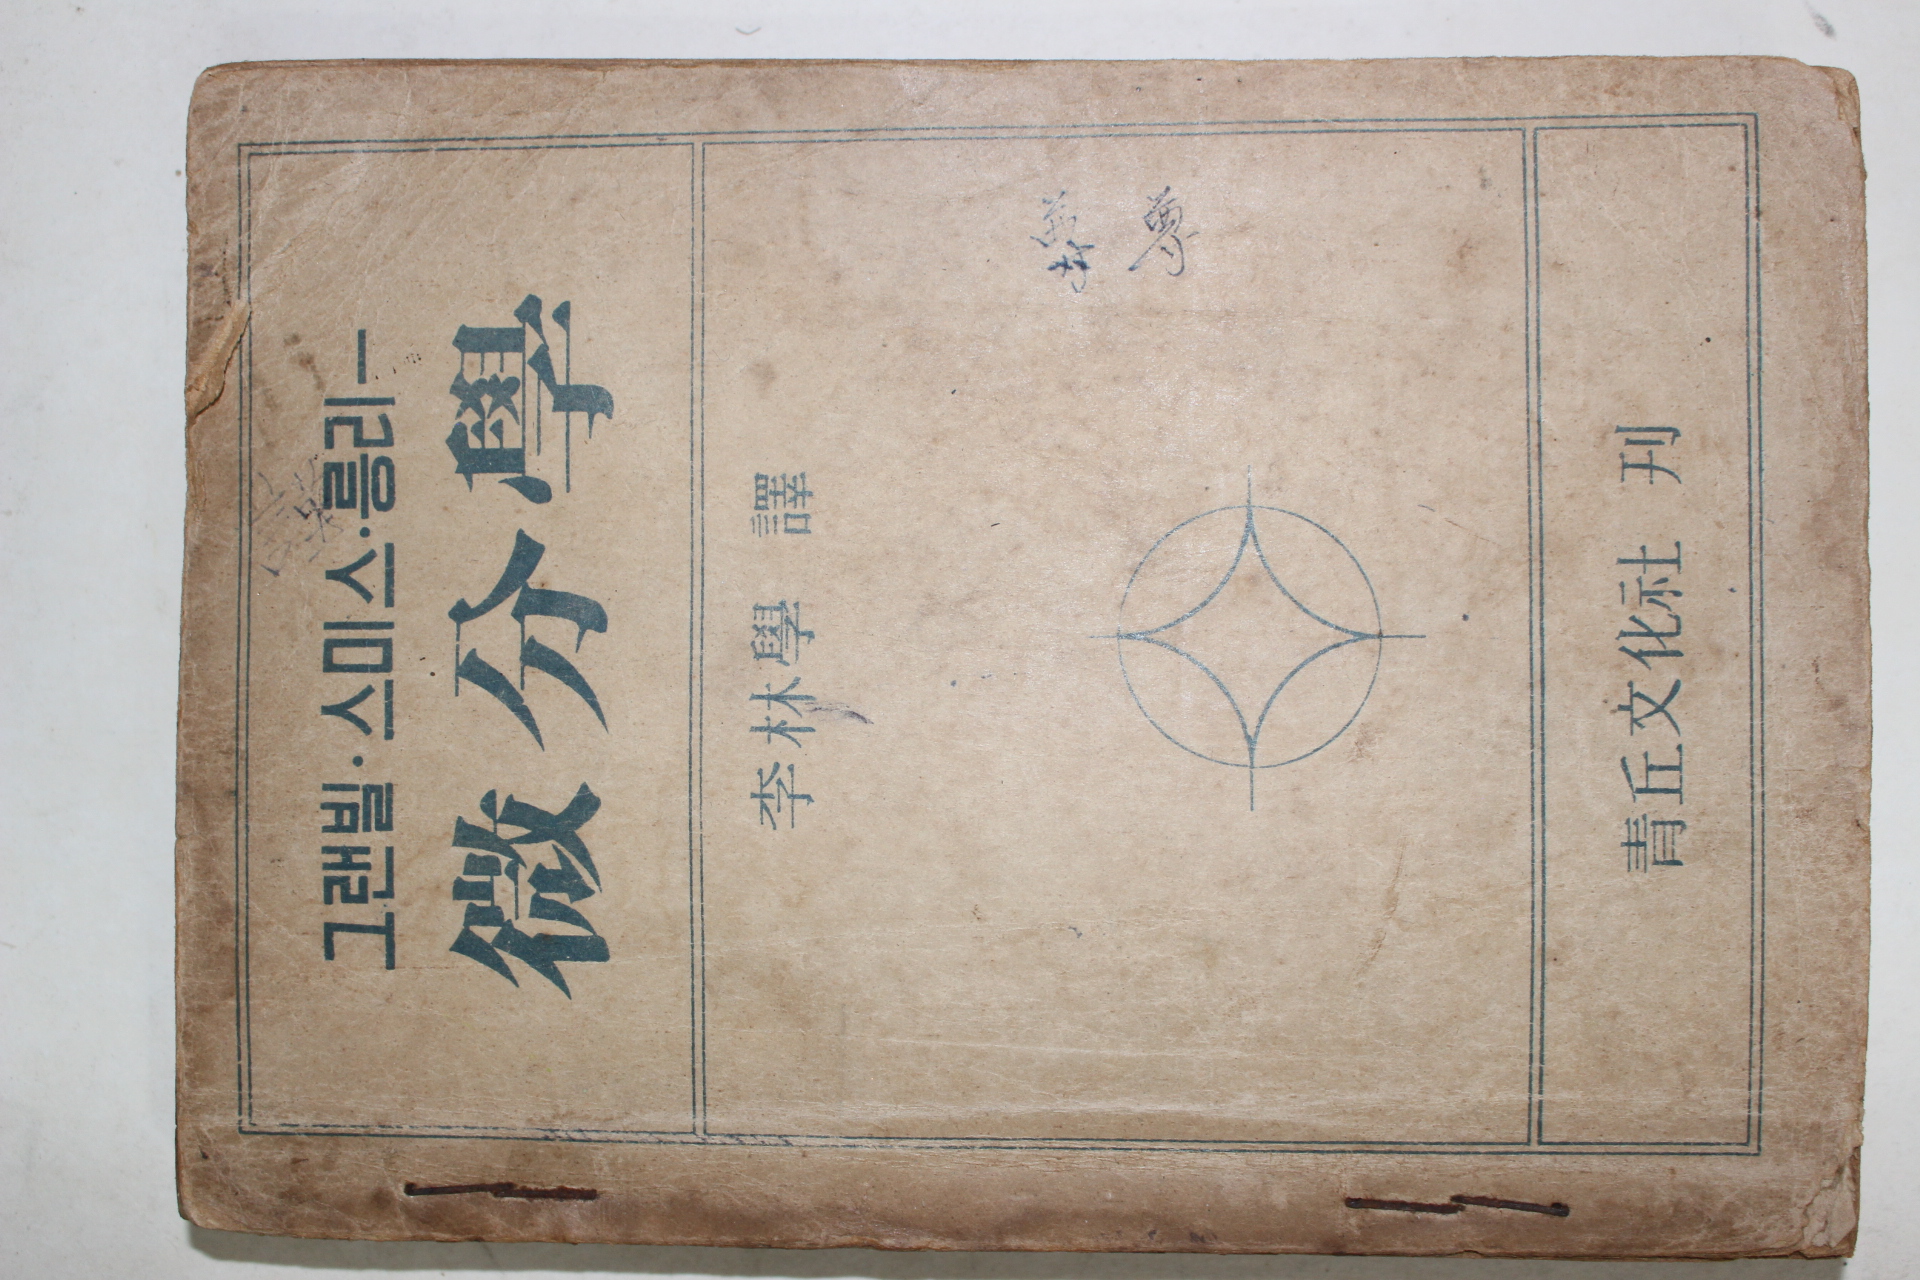 그랜빌·스미스·롱리ー
微分學
李林學 譯
靑丘文化社 刊